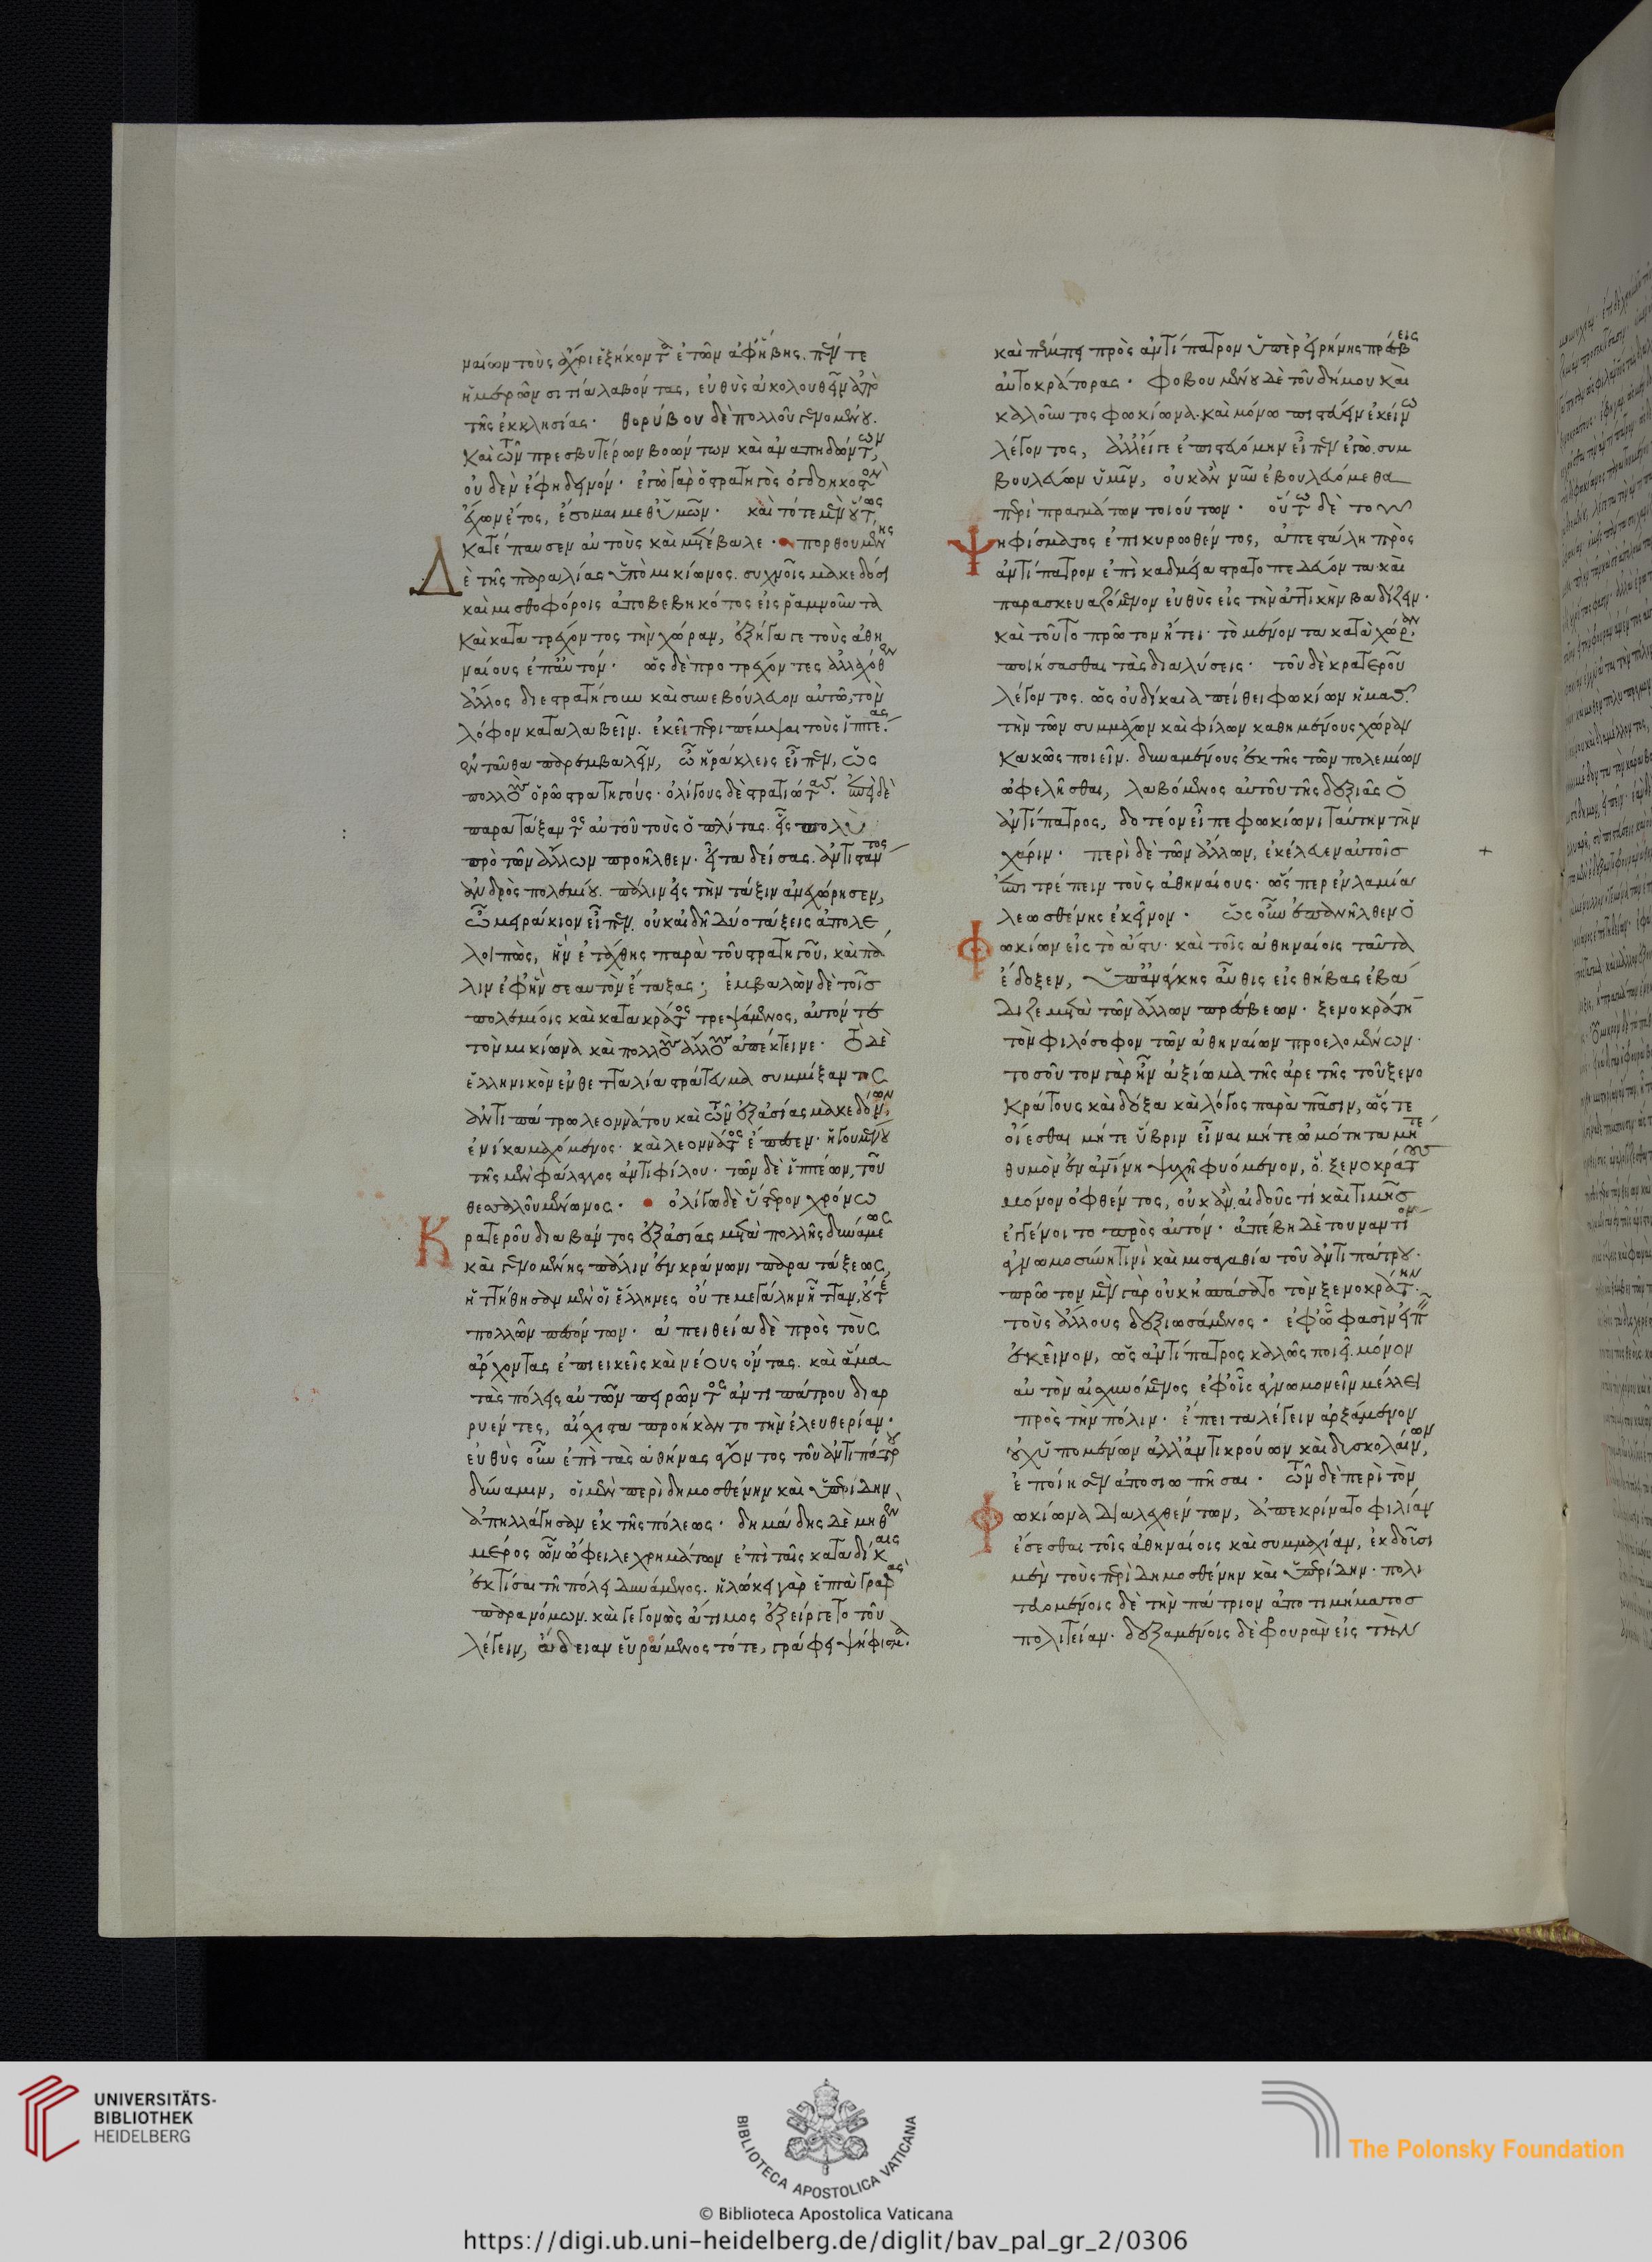 ναίων τοὺς ἄχρι ἑξήκοντα ἐτῶν ἀφ' ἥβης. πέντε
ἡμερῶν σιτία λαβόντας, εὐθὺς ἀκολουθεῖν ἀπὸ
τῆς ἐκκλησίας· θορύβου δὲ πολλοῦ γενομένου.
καὶ τῶν πρεσβυτέρων βοώντων καὶ ἀναπηδώντων,
οὐδὲν ἔφη δεινόν· ἐγὼ γὰρ ὁ στρατηγὸς ὀγδοηκοστὸν
ἔχων ἔτος, ἔσομαι μεθ' ὑμῶν· καὶ τότε μὲν οὕτως
κατέπαυσεν αὐτοὺς καὶ μετέβαλε· πορθουμένης
Δὲ τῆς παραλίας ὑπὸ μικίωνος. συχνοῖς μακεδόσι
καὶ μισθοφόροις ἀποβεβηκότος εἰς ῥαμνοῦντα
καὶ κατατρέχοντος τὴν χώραν, ἐξήγαγε τοὺς ἀθη
ναίους ἐπ' αὐτόν· ὡς δὲ προτρέχοντες ἀλλαχόθεν
ἄλλος διεστρατήγουν καὶ συνεβούλευον αὐτῶ, τὸν
λόφον καταλαβεῖν. ἐκεῖ περιπέμψαι τοὺς ἱππέας.
ἐνταῦθα παρεμβαλεῖν, ὦ ἡράκλεις εἶπεν, ὡς
πολλοὺς ὁρῶ στρατηγούς· ὀλίγους δὲ στρατιώτας. ἐπεὶ δὲ
παρατάξαντος αὐτοῦ τοὺς ὁπλίτας. εἷς πολὺ
πρὸ τῶν ἄλλων προῆλθεν. εἶτα δείσας. ἀντιστάντος
ἀνδρὸς πολεμίου. πάλιν εἰς τὴν τάξιν ἀνεχώρησεν,
ὦ μειράκιον εἶπεν. οὐκ αἰδῆ δύο τάξεις ἀπολε
λοιπὼς, ἣν ἐτάχθης παρὰ τοῦ στρατηγοῦ, καὶ πά
λιν ἐφ' ἣν σεαυτὸν ἔταξας; ἐμβαλὼν δὲ τοῖς
πολεμίοις καὶ κατακράτος τρεψάμενος, αὐτόν τε
τὸν μικίωνα καὶ πολλοὺς ἄλλους ἀπέκτεινε· τὸ δὲ
ἑλληνικὸν ἐν θετταλία στράτευμα συμμίξαντος
ἀντιπάτρω λεοννάτου καὶ τῶν ἐξ ἀσίας μακεδόνων,
ἐνίκα μαχόμενος· καὶ λεοννάτος ἔπεσεν· ἡγουμένου
τῆς μὲν φάλαγγος ἀντιφίλου· τῶν δὲ ἱππέων, τοῦ
θεσσαλοῦ μένωνος· ὀλίγω δὲ ὕστερον χρόνω
Κρατεροῦ διαβάντος ἐξ ἀσίας μετὰ πολλῆς δυνάμεως
καὶ γενομένης πάλιν ἐν κράννωνι παρατάξεως,
ἡττήθησαν μὲν οἱ ἕλληνες οὔτε μεγάλην ἧτταν, οὔτε
πολλῶν πεσόντων· ἀπειθεία δὲ πρὸς τοὺς
ἄρχοντας ἐπιεικεῖς καὶ νέους ὄντας. καὶ ἅμα
τὰς πόλεις αὐτῶν πειρῶντος ἀντιπάτρου διαρ
ρυέντες, αἴσχιστα προήκαντο τὴν ἐλευθερίαν·
εὐθὺς οὖν ἐπὶ τὰς ἀθήνας ἄγοντος τοῦ ἀντιπάτρου
δύναμιν, οἱ μὲν περὶ δημοσθένην καὶ ὑπερίδην,
ἀπηλλάγησαν ἐκ τῆς πόλεως· δημάδης δὲ μηθὲν
μέρος ὧν ὤφειλε χρημάτων ἐπὶ ταῖς καταδίκαις
ἐκτίσαι τῆ πόλει δυνάμενος. ἡλώκει γὰρ ἑπτὰ γραφὰς
παρανόμων. καὶ γεγονὼς ἄτιμος ἐξείργετο τοῦ
λέγειν, ἄδειαν εὑράμενος τότε, γράφει ψήφισμα.
καὶ πέμπει πρὸς ἀντίπατρον ὑπὲρ εἰρήνης πρέσβεις
αὐτοκράτορας· φοβουμένου δὲ τοῦ δήμου καὶ
καλοῦντος φωκίωνα. καὶ μόνω πιστεύειν ἐκείνω
λέγοντος, ἀλλ' εἴγε ἐπιστευόμην εἶπεν ἐγὼ συμ
βουλεύων ὑμῖν, οὐκ ἂν νῦν ἐβουλευόμεθα
περὶ πραγμάτων τοιούτων· οὕτω δὲ τοῦ
Ψηφίσματος ἐπικυρωθέντος, ἀπεστάλη πρὸς
ἀντίπατρον ἐπὶ καδμεία στρατοπεδεύοντα· καὶ
παρασκευαζόμενον εὐθὺς εἰς τὴν ἀττικὴν βαδίζειν·
καὶ τοῦτο πρῶτον ἤτει· τὸ μένοντα κατὰ χώραν,
ποιήσασθαι τὰς διαλύσεις· τοῦ δὲ κρατεροῦ
λέγοντος. ὡς οὐ δίκαια πείθει φωκίων ἡμᾶς
τὴν τῶν συμμάχων καὶ φίλων καθημένους χώραν
κακῶς ποιεῖν. δυναμένους ἐκ τῆς τῶν πολεμίων
ὠφελῆσθαι, λαβόμενος αὐτοῦ τῆς δεξιᾶς ὁ
ἀντίπατρος, δοτέον εἶπε φωκίωνι ταύτην τὴν
χάριν· περὶ δὲ τῶν ἄλλων, ἐκέλευεν αὐτοῖς
ἐπιτρέπειν τοὺς ἀθηναίους· ὥσπερ ἐν λαμία
λεωσθένης ἐκεῖνον· ὡς οὖν ἐπανῆλθεν ὁ
Φωκίων εἰς τὸ ἄστυ· καὶ τοῖς ἀθηναίοις ταῦτα
ἔδοξεν, ὑπ' ἀνάγκης αὖθις εἰς θήβας ἐβά
διζε μετὰ τῶν ἄλλων πρέσβεων· ξενοκράτη
τὸν φιλόσοφον τῶν ἀθηναίων προελομένων·
τοσοῦτον γὰρ ἦν ἀξίωμα τῆς ἀρετῆς τοῦ ξενο
κράτους καὶ δόξα καὶ λόγος παρὰ πᾶσιν, ὥστε
οἴεσθαι μήτε ὕβριν εἶναι μήτε ὠμότητα μήτε
θυμὸν ἐν ἀν͞ινη ψυχῆ φυόμενον, ὃ ξενοκράτους
μόνον ὀφθέντος, οὐκ ἂν αἰδοῦς τί καὶ τιμῆς
ἐγένοιτο πρὸς αὐτόν· ἀπέβη δὲ τοὐναντίον
ἀγνωμοσύνη τινὶ καὶ μισαγαθία τοῦ ἀντιπάτρου·
πρῶτον μὲν γὰρ οὐκ ἠσπάσατο τὸν ξενοκράτην·
τοὺς ἄλλους δεξιωσάμενος· ἐφ' ᾧ φασὶν εἰπεῖν
ἐκεῖνον, ὡς ἀντίπατρος καλῶς ποιεῖ. μόνον
αὐτὸν αἰσχυνόμενος ἐφ' οἷς ἀγνωμονεῖν μέλλει
πρὸς τὴν πόλιν· ἔπειτα λέγειν ἀρξάμενον
οὐχ ὑπομένων ἀλλ' ἀντικρούων καὶ δυσκολαίνων,
ἐποίησεν ἀποσιωπῆσαι· τῶν δὲ περὶ τὸν
Φωκίωνα διαλεχθέντων, ἀπεκρίνατο φιλίαν
ἔσεσθαι τοῖς ἀθηναίοις καὶ συμμαχίαν, ἐκδοῦσι
μὲν τοὺς περὶ δημοσθένην καὶ ὑπερίδην· πολι
τευομένοις δὲ τὴν πάτριον ἀπὸ τιμήματος
πολιτείαν· δεξαμένοις δὲ φρουρὰν εἰς τὴν
UNIVERSITÄTS-
BIBLIOTHEK
HEIDELBERG
BIBLIOTECA APOSTOLICA VATICANA
The Polonsky Foundation
© Biblioteca Apostolica Vaticana
https://digi.ub.uni-heidelberg.de/diglit/bav_pal_gr_2/0306